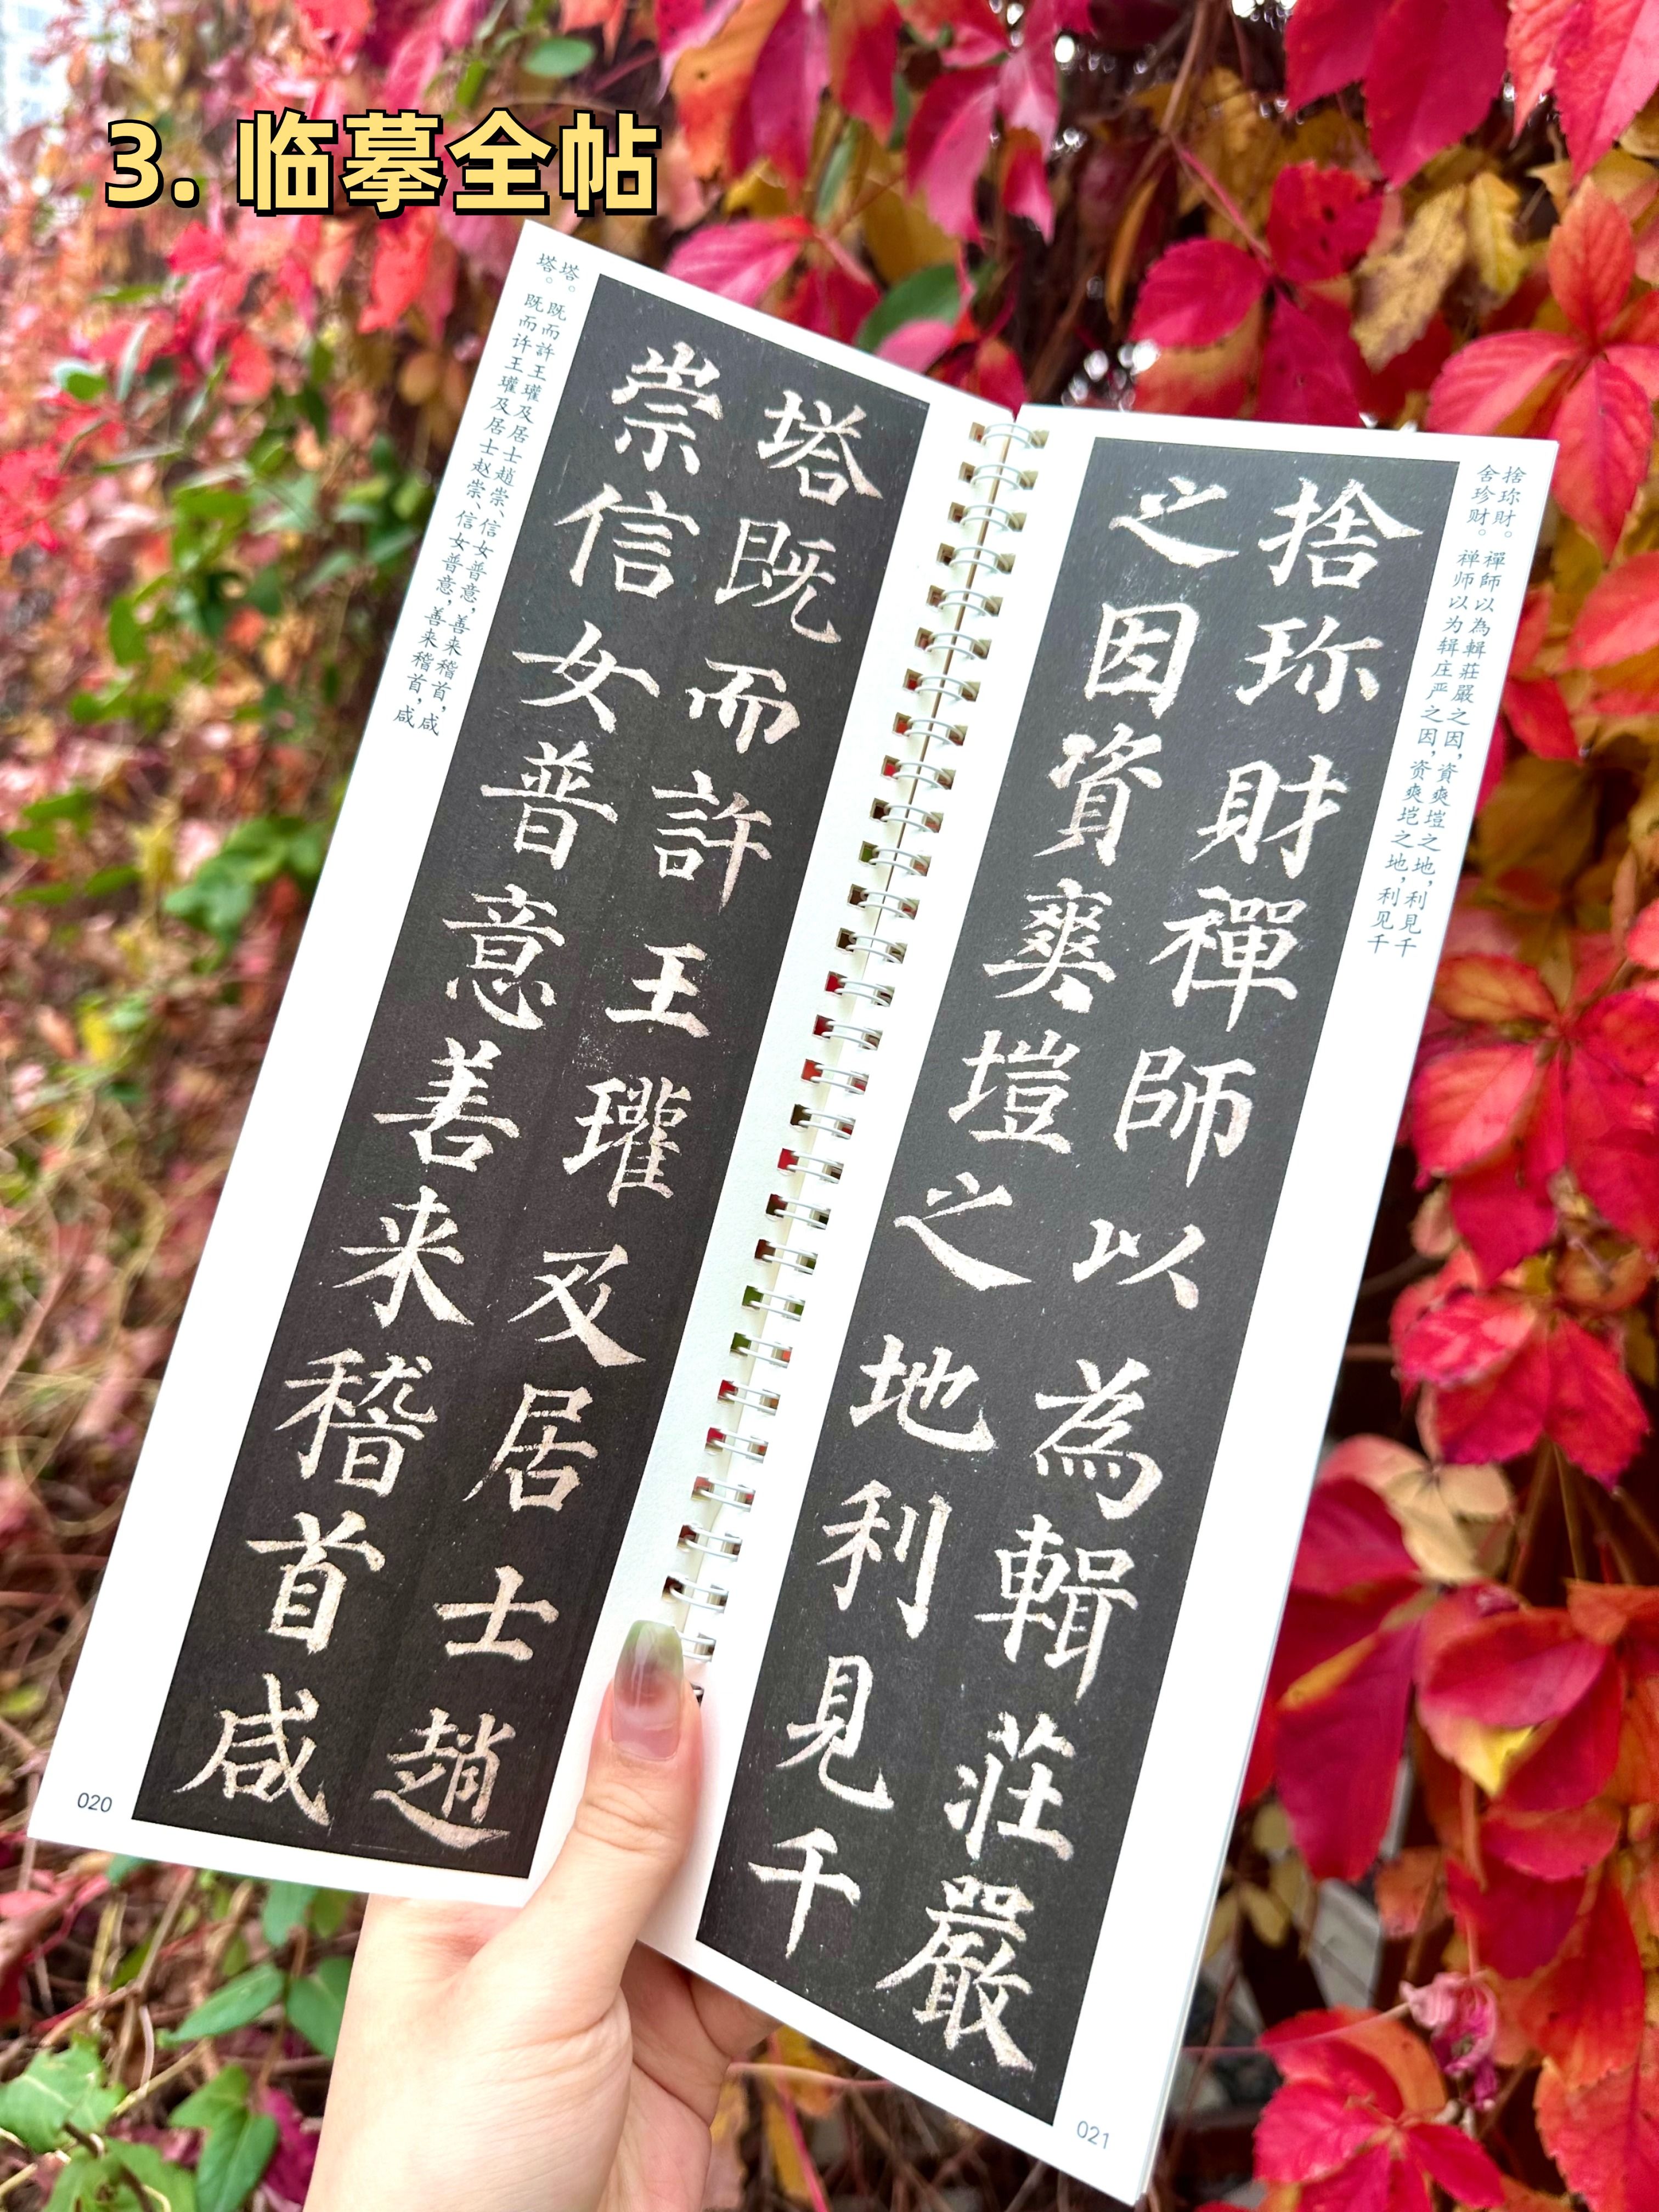 3. 临摹全帖
塔。既而許王瓘及居士趙崇、信女普意，善来稽首，咸
塔。既而许王瓘及居士赵崇、信女普意，善来稽首，咸
塔既而許王瓘及居士趙
崇信女普意善来稽首咸
020
捨珎財。禪師以為輯莊嚴之因，資爽塏之地，利見千
舍珍财。禅师以为辑庄严之因，资爽垲之地，利见千
捨珎財禪師以為輯莊嚴
之因資爽塏之地利見千
021